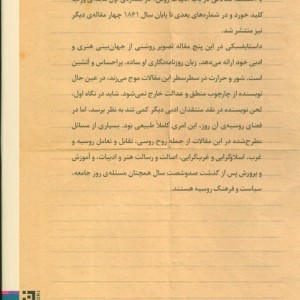 کلید خورد و در شماره‌های بعدی تا پایان سال ۱۸۶۱ چهار مقاله‌ی دیگر
نیز منتشر شد.
داستایفسکی در این پنج مقاله تصویر روشنی از جهان‌بینی هنری و
ادبی خود ارائه می‌دهد. زبان روزنامه‌نگاری او ساده، پراحساس و آتشین
است، شور و حرارت در سطرسطر این مقالات موج می‌زند، در عین حال
نویسنده از چارچوب منطق و عدالت خارج نمی‌شود. شاید در نگاه اول،
لحن نویسنده در نقد منتقدان ادبی دیگر کمی تند به نظر برسد، اما در
فضای روسیه‌ی آن روز، این امری کاملاً طبیعی بود. بسیاری از مسائل
مطرح‌شده در این مقالات از جمله روح روسی، تقابل و تعامل روسیه و
غرب، اسلاوگرایی و غربگرایی، اصالت و رسالت هنر و ادبیات، و آموزش
و پرورش پس از گذشت صدوشصت سال همچنان مسئله‌ی روز جامعه،
سیاست و فرهنگ روسیه هستند.